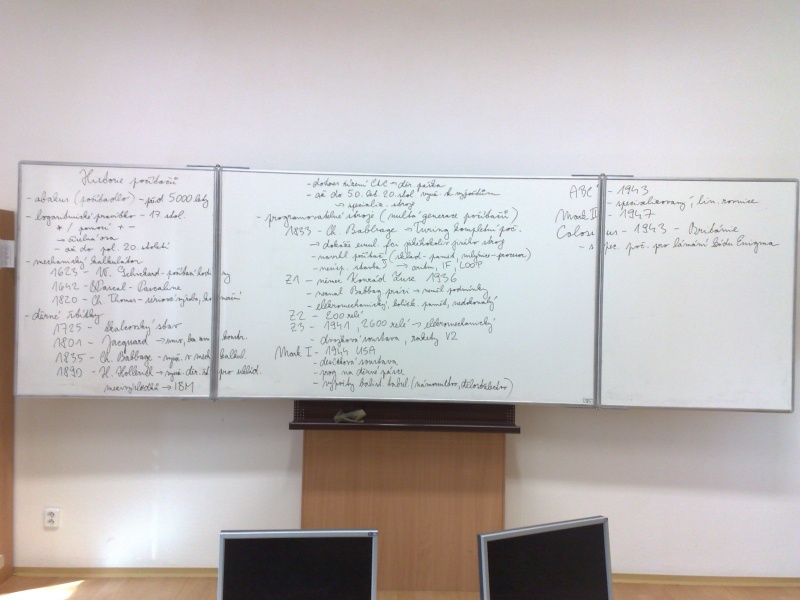 Historie počítačů
- abakus (počítadlo) - před 5000 lety
- logaritmické pravítko - 17. stol.
* / pomocí + -
- až do pol. 20 století
- mechanický kalkulátor
1623 - W. Schickard - počítací hodiny
1642 - Pascal - Pascaline
1820 - Ch. Thomas - sériová výroba, komerční
- děrné štítky
1725 - tkalcovský stav
1801 - Jacquard
1835 - Ch. Babbage
1890 - H. Hollerith
→ IBM
- až do 50. let 20. stol
→ specializ. stroje
- programovatelné stroje (nultá generace počítačů)
1833 - Ch. Babbage → Turing kompletní poč.
- navrhl počítač (sklad - paměť, mlýnice - procesor)
→ aritm, IF, LOOP
Z1 - němec Konrád Zuse 1936
- neznal Babbag. práci
- elektromechanický, kolíčk. paměť, nedokonalý
Z2 - 200 relé
Z3 - 1941, 2600 relé → elektromechanický
- dvojková soustava, rakety V2
Mark I - 1944 USA
- desítková soustava
- prog. na děrné pásce
- výpočty balist. tabul.
ABC - 1943
- specializovaný, lin. rovnice
Mark II - 1947
Colossus - 1943 - Británie
- spec. poč. pro lámání kódu Enigma